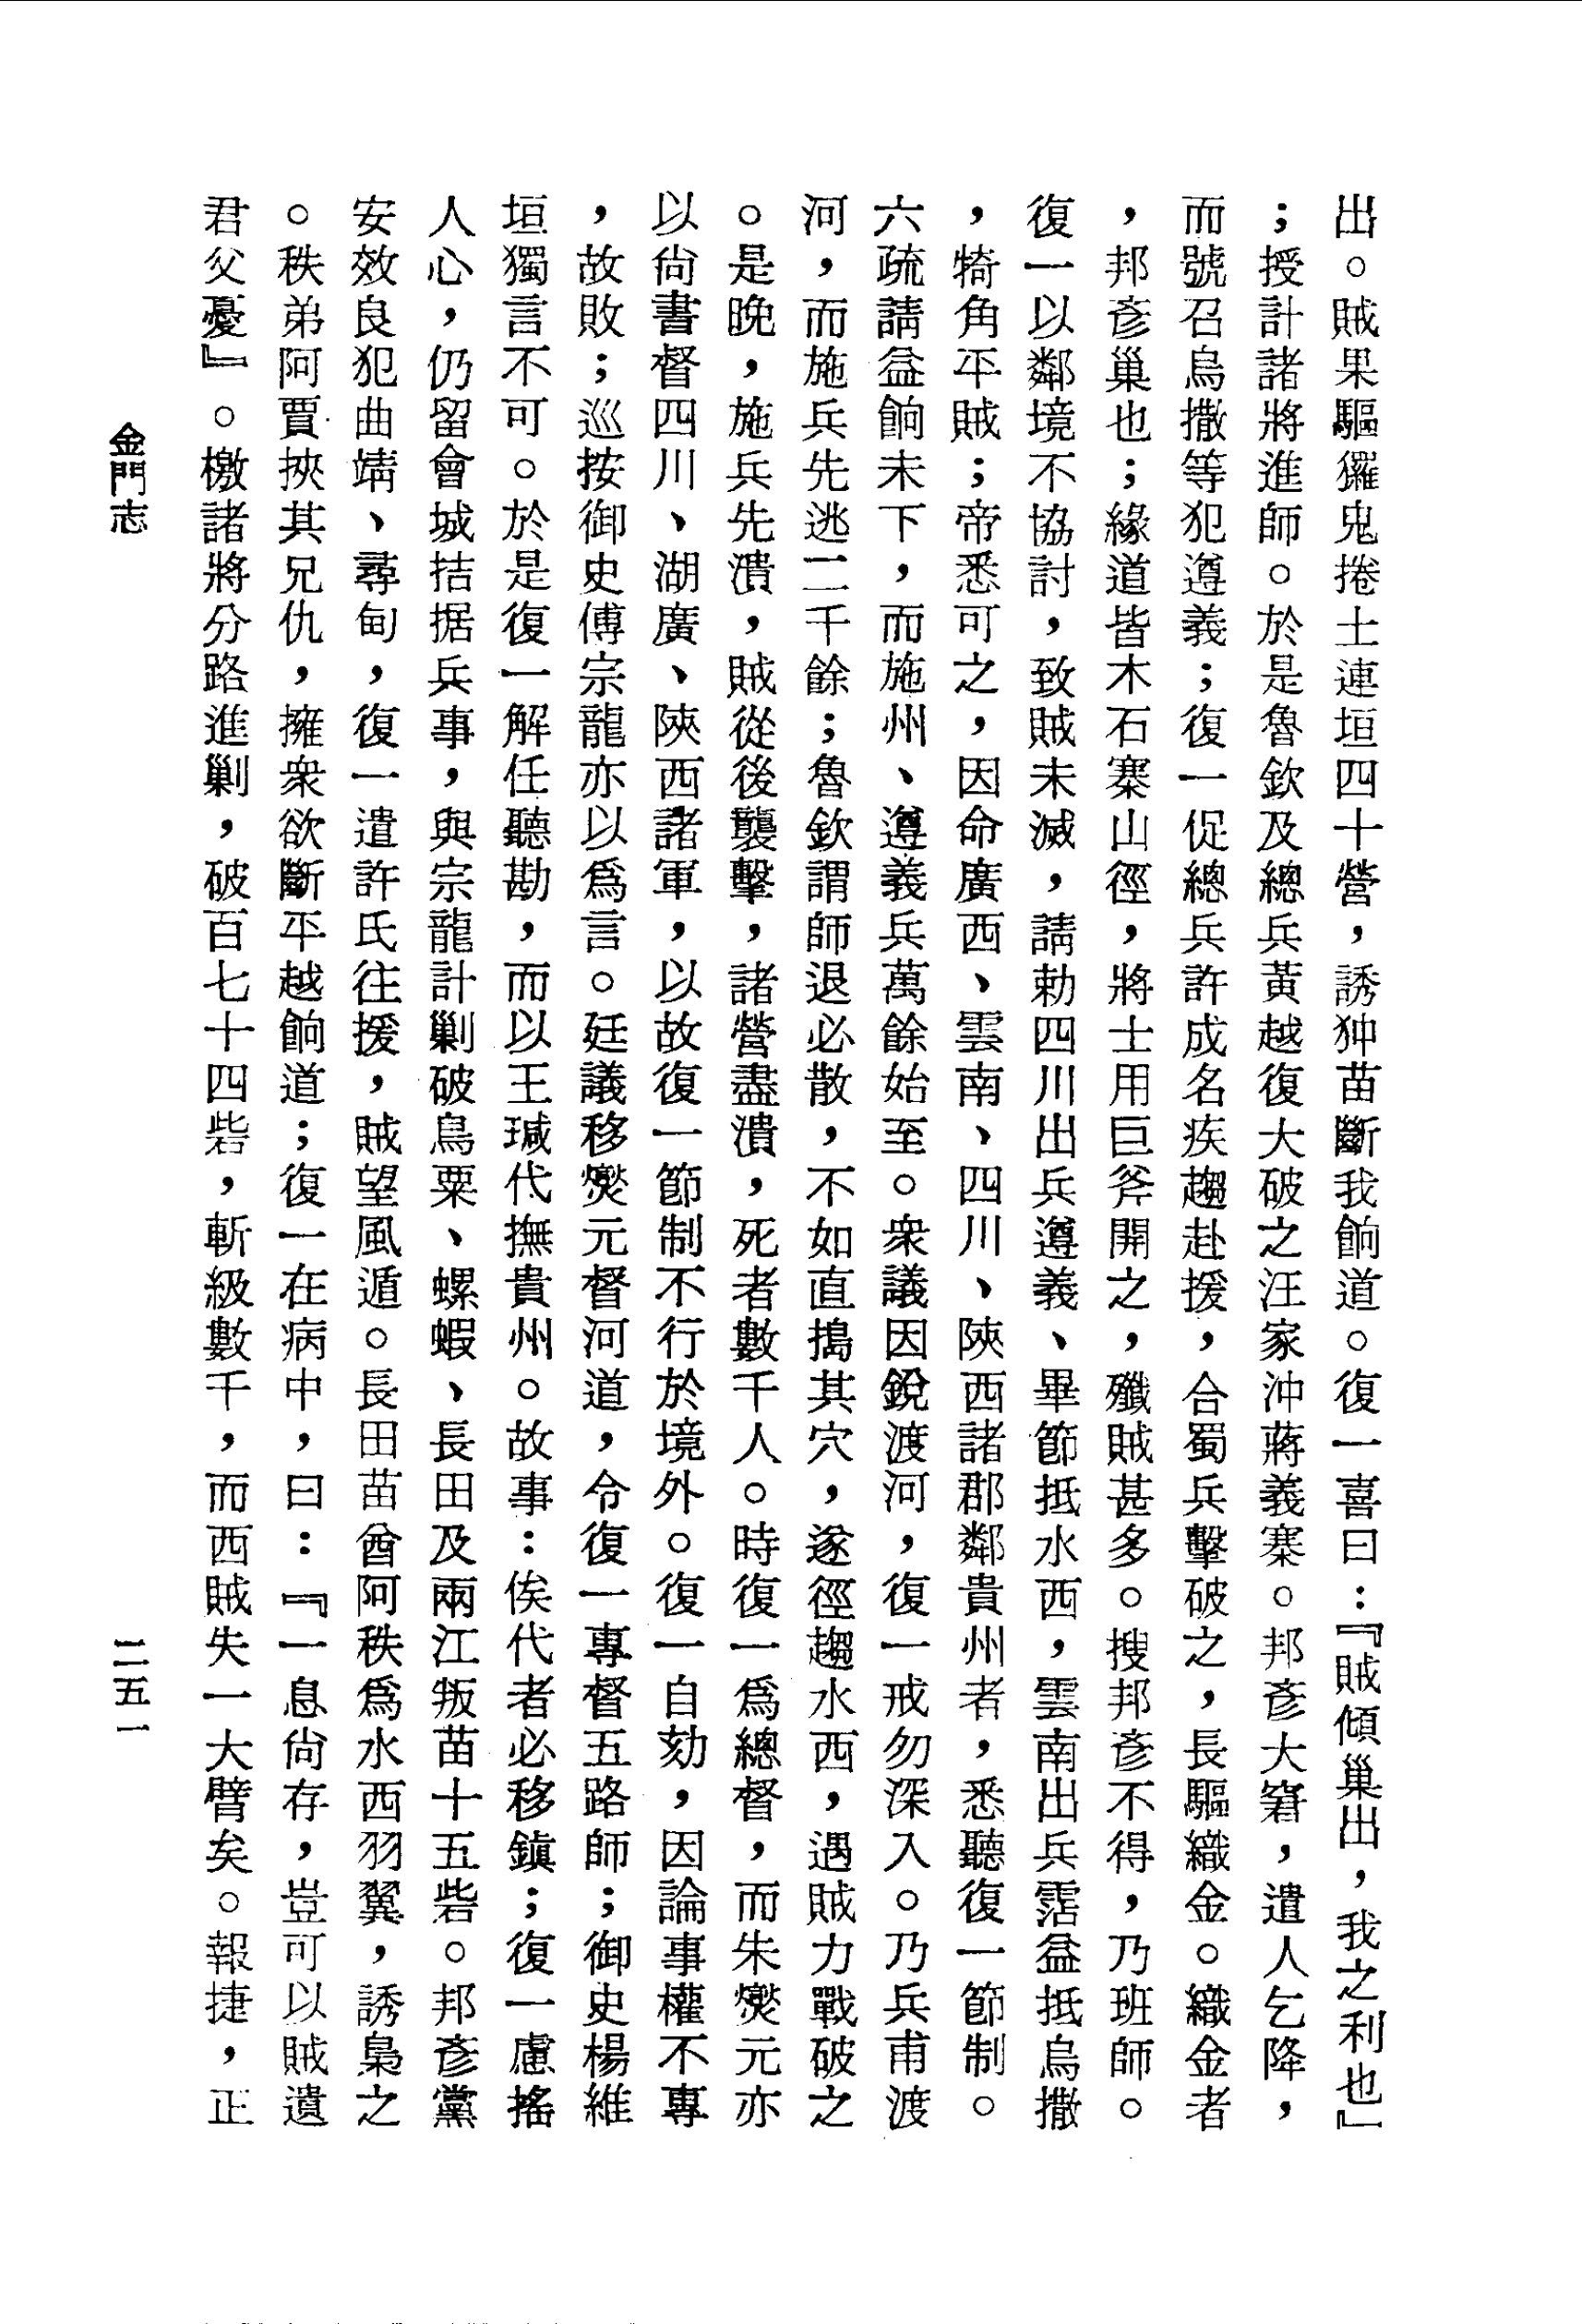 出。賊果驅玀鬼捲土連垣四十營，誘狆苗斷我餉道。復一喜曰：『賊傾巢出，我之利也』
；授計諸將進師。於是魯欽及總兵黃越復大破之汪家沖蔣義寨。邦彥大窘，遣人乞降，
而號召烏撒等犯遵義；復一促總兵許成名疾趨赴援，合蜀兵擊破之，長驅織金。織金者
，邦彥巢也；緣道皆木石寨山徑，將士用巨斧開之，殲賊甚多。搜邦彥不得，乃班師。
復一以鄰境不協討，致賊未滅，請勅四川出兵遵義、畢節抵水西，雲南出兵霑益抵烏撒
，犄角平賊；帝悉可之，因命廣西、雲南、四川、陝西諸郡鄰貴州者，悉聽復一節制。
六疏請益餉未下，而施州、遵義兵萬餘始至。衆議因銳渡河，復一戒勿深入。乃兵甫渡
河，而施兵先逃二千餘；魯欽謂師退必散，不如直搗其穴，遂徑趨水西，遇賊力戰破之
。是晚，施兵先潰，賊從後襲擊，諸營盡潰，死者數千人。時復一爲總督，而朱燮元亦
以尙書督四川、湖廣、陝西諸軍，以故復一節制不行於境外。復一自劾，因論事權不專
，故敗；巡按御史傅宗龍亦以爲言。廷議移燮元督河道，令復一專督五路師；御史楊維
垣獨言不可。於是復一解任聽勘，而以王瑊代撫貴州。故事：俟代者必移鎭；復一慮搖
人心，仍留會城拮据兵事，與宗龍計剿破烏粟、螺蝦、長田及兩江叛苗十五砦。邦彥黨
安效良犯曲靖、尋甸，復一遣許氏往援，賊望風遁。長田苗酋阿秩爲水西羽翼，誘梟之
。秩弟阿賈挾其兄仇，擁衆欲斷平越餉道；復一在病中，曰：『一息尙存，豈可以賊遺
君父憂』。檄諸將分路進剿，破百七十四砦，斬級數千，而西賊失一大臂矣。報捷，正
金門志
二五一